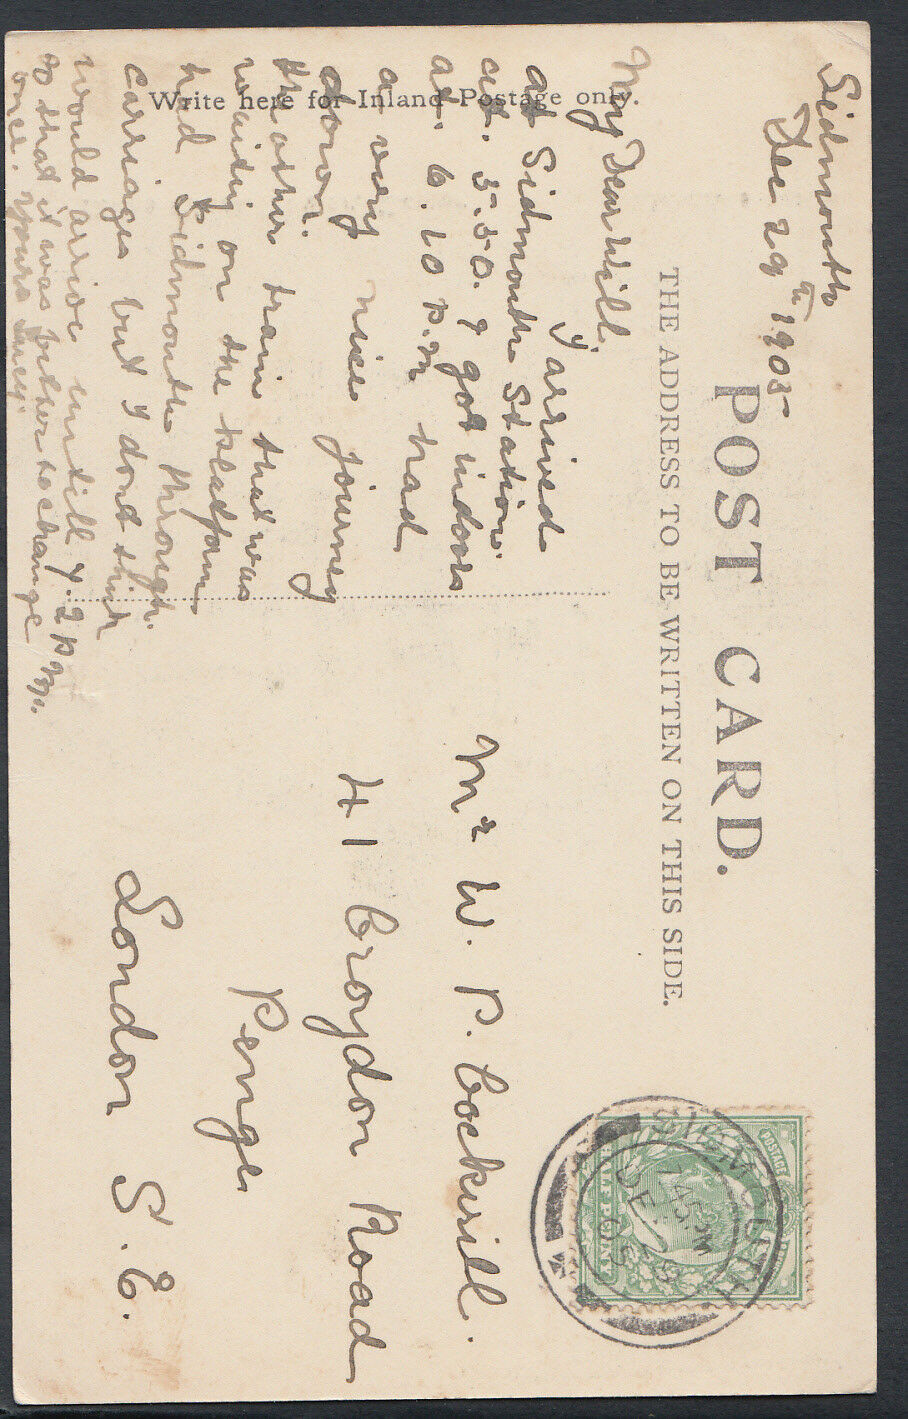 POST CARD.
THE ADDRESS TO BE WRITTEN ON THIS SIDE.
Write here for Inland Postage only.
Sidmouth
Dec 29th 1905
My Dear Will.
I arrived
at Sidmouth Station
at. 5.50. I got indoors
at. 6.10 p.m had
a very nice journey
down.
the other train that was
waiting on the platform
had Sidmouth through
carriages but I dont think
would arrive untill 7.2 p.m.
so that it was better to change
once. yours
Mr W. P. Cockerill.
41 Croydon Road
Penge
London S.E.
SIDMOUTH
7 45 PM
DE 29
05
POSTAGE
HALF PENNY